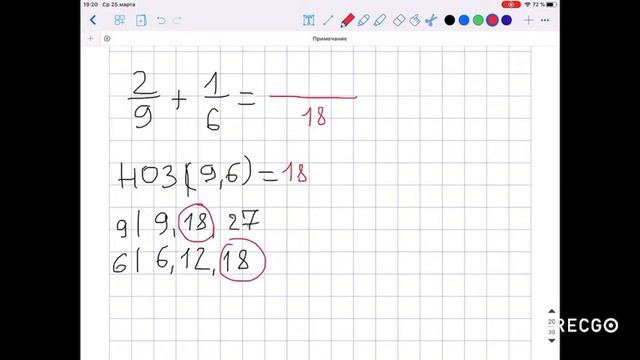 19:20 Ср 25 марта
72 %
Примечание
2/9 + 1/6 = /18
НОЗ(9,6)=18
9| 9, 18, 27
6| 6, 12, 18
20
20
RECGO